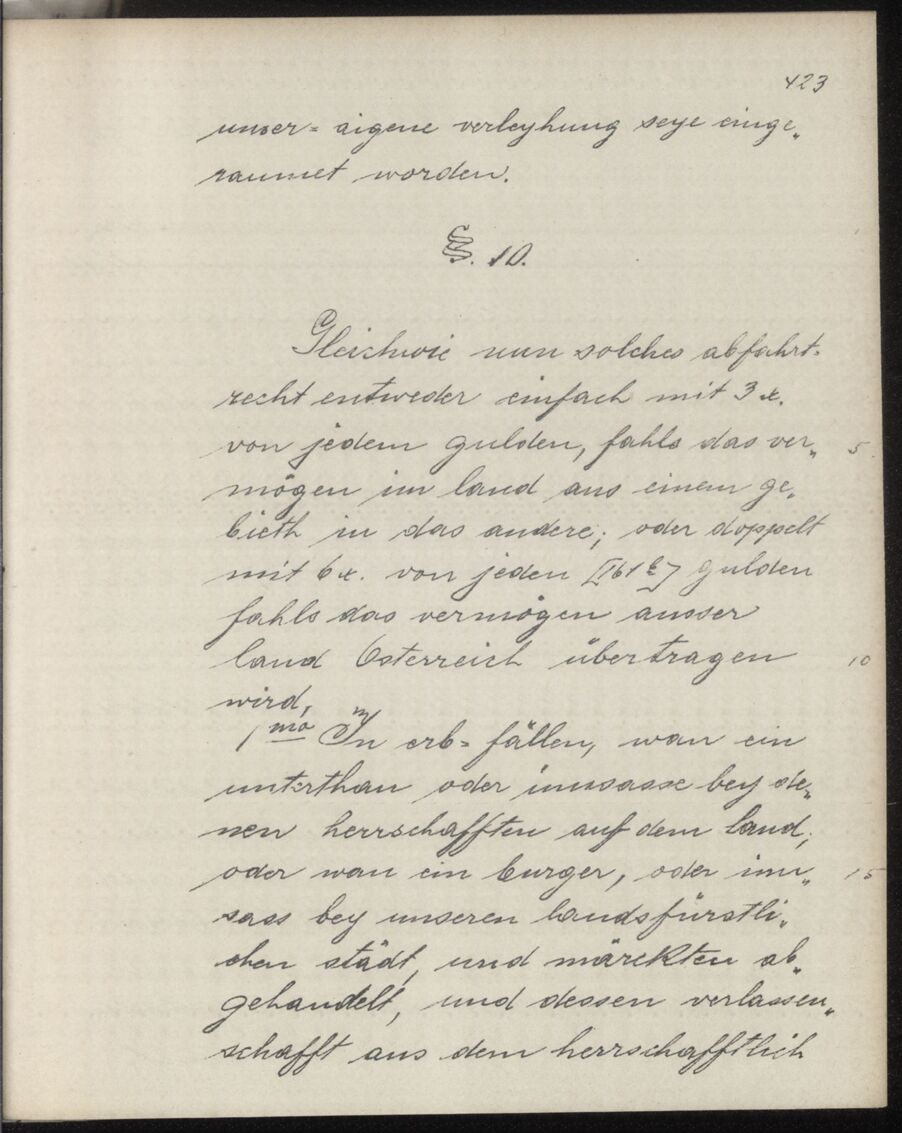 423
unser= aigene verleyhung seye einge„
raumet worden.
§. 10.
Gleichwie nun solches abfahrt=
recht entweder einfach mit 3 x.
von jedem gulden, fahls das ver„ 5
mögen im land aus einem ge„
bieth in das andere; oder doppelt
mit 6 x. von jeden [161 b] gulden
fahls das vermögen ausser
land Österreich übertragen 10
wird,
1mo In erb= fällen, wan ein
unterthan oder innsasse bey de„
nen herrschafften auf dem land;
oder wan ein burger, oder inn„ 15
sass bey unseren landsfürstli„
chen städt, und märckten ab„
gehandelt, und dessen verlassen„
schafft aus dem herrschafftlich